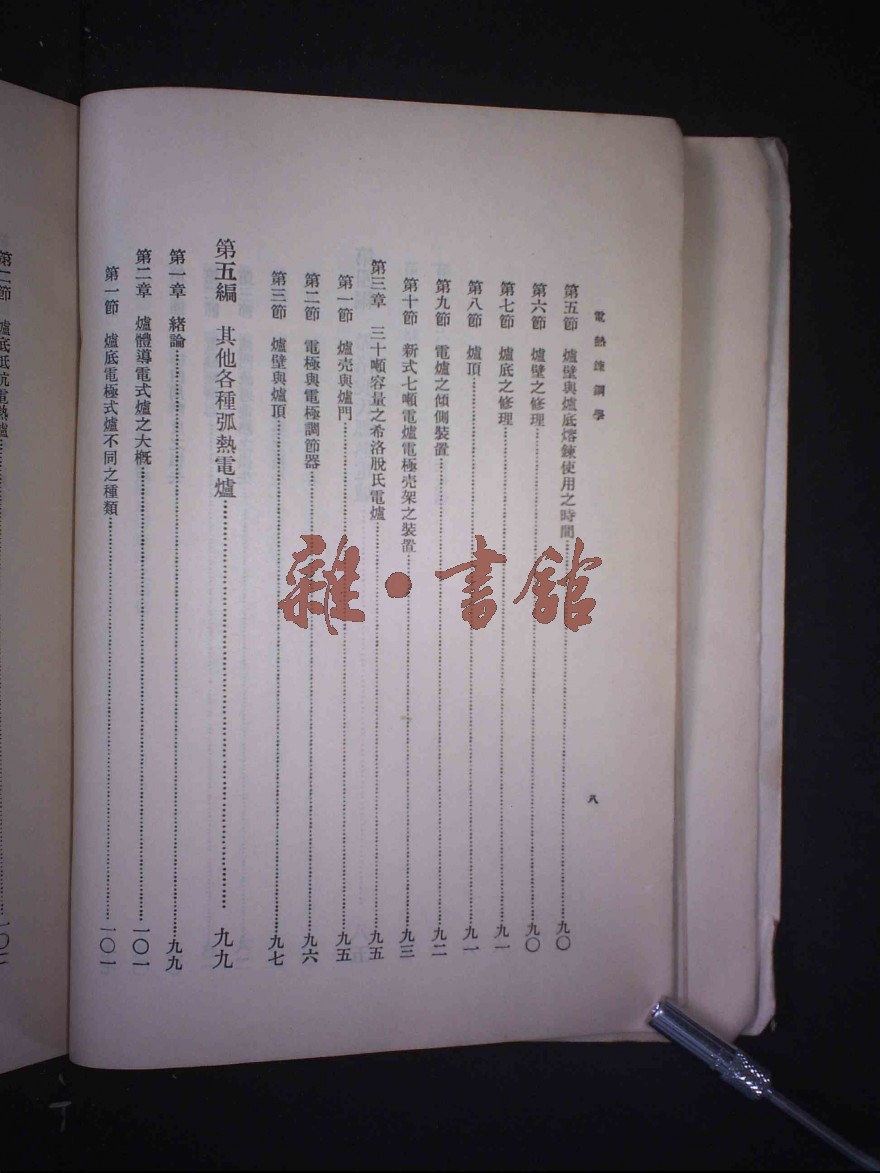 電熱鍊鋼學
八
第五節 爐壁與爐底熔鍊使用之時間……九〇
第六節 爐壁之修理……九〇
第七節 爐底之修理……九一
第八節 爐頂……九一
第九節 電爐之傾側裝置……九二
第十節 新式七噸電爐電極壳架之裝置……九三
第三章 三十噸容量之希洛脫氏電爐……九五
第一節 爐壳與爐門……九五
第二節 電極與電極調節器……九六
第三節 爐壁與爐頂……九七
第五編 其他各種弧熱電爐……九九
第一章 緒論……九九
第二章 爐體導電式爐之大概……一〇一
第一節 爐底電極式爐不同之種類……一〇一
第二節 爐底抵抗電熱爐
雜·書館